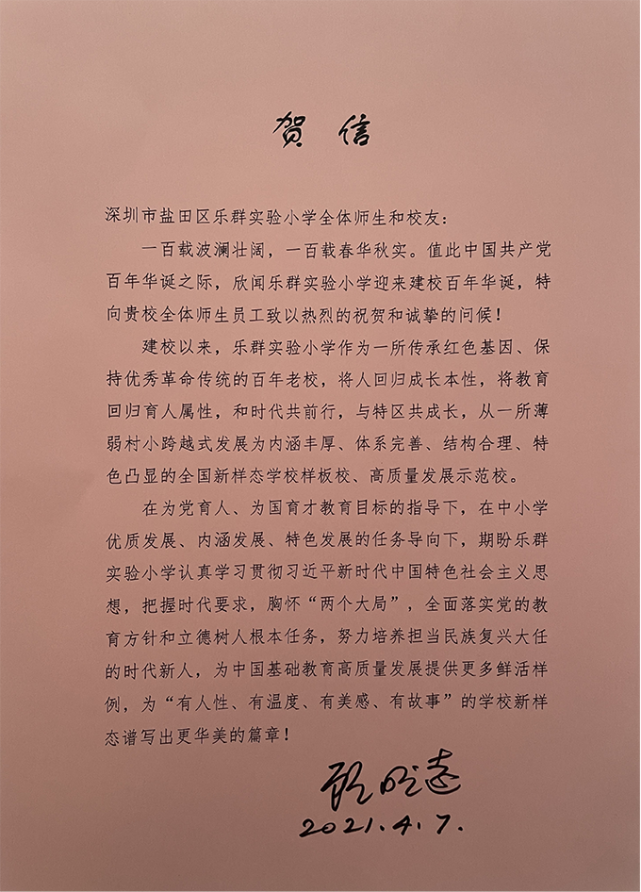 贺信
深圳市盐田区乐群实验小学全体师生和校友：
一百载波澜壮阔，一百载春华秋实。值此中国共产党
百年华诞之际，欣闻乐群实验小学迎来建校百年华诞，特
向贵校全体师生员工致以热烈的祝贺和诚挚的问候！
建校以来，乐群实验小学作为一所传承红色基因、保
持优秀革命传统的百年老校，将人回归成长本性，将教育
回归育人属性，和时代共前行，与特区共成长，从一所薄
弱村小跨越式发展为内涵丰厚、体系完善、结构合理、特
色凸显的全国新样态学校样板校、高质量发展示范校。
在为党育人、为国育才教育目标的指导下，在中小学
优质发展、内涵发展、特色发展的任务导向下，期盼乐群
实验小学认真学习贯彻习近平新时代中国特色社会主义思
想，把握时代要求，胸怀“两个大局”，全面落实党的教
育方针和立德树人根本任务，努力培养担当民族复兴大任
的时代新人，为中国基础教育高质量发展提供更多鲜活样
例，为“有人性、有温度、有美感、有故事”的学校新样
态谱写出更华美的篇章！
2021.4.7.